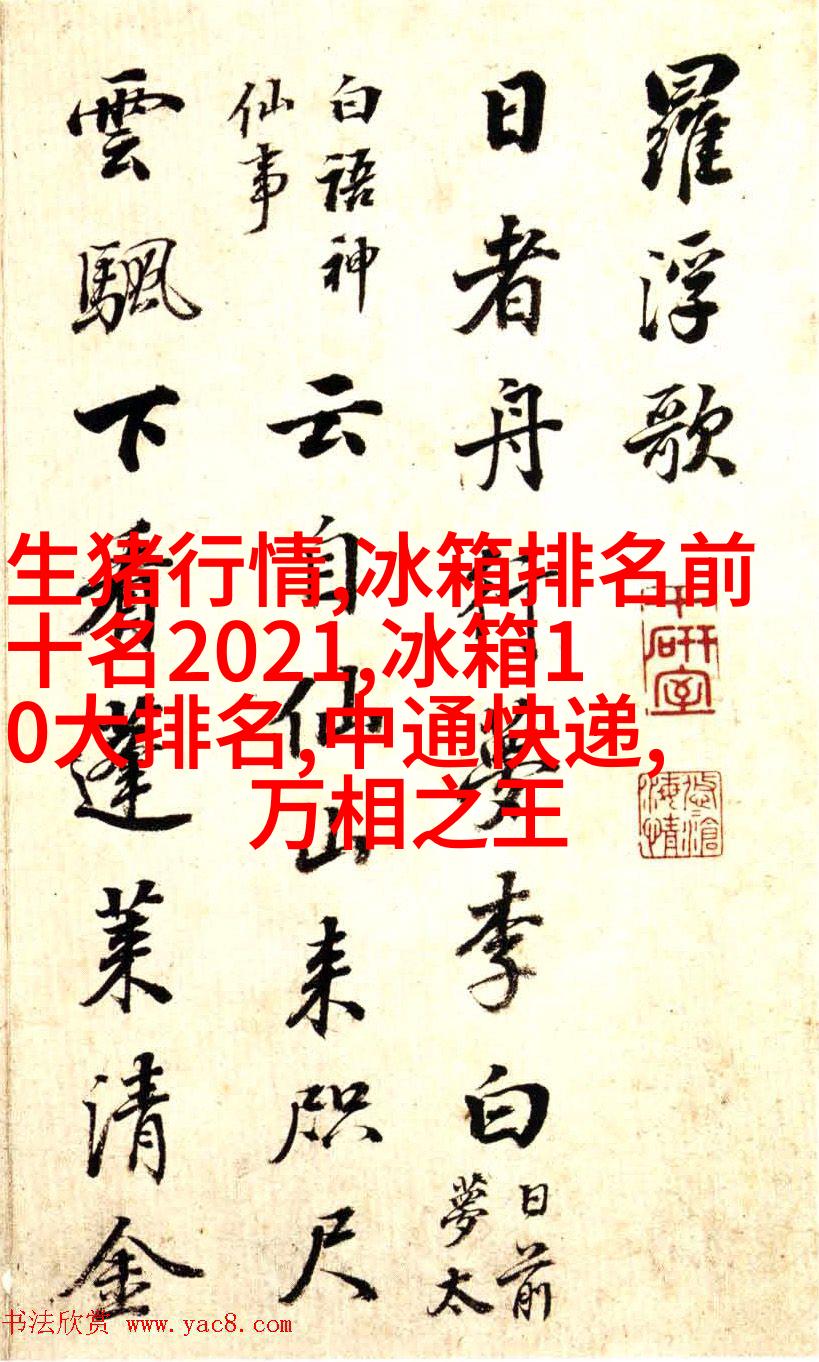 羅浮歌
日者舟行夢李白
日前
夢太
白語神
仙事
云自仙山来咫尺
雲颿下看蓬莱清金
生猪行情,冰箱排名前
十名2021,冰箱1
0大排名,中通快递,
万相之王
书法欣赏 www.yac8.com